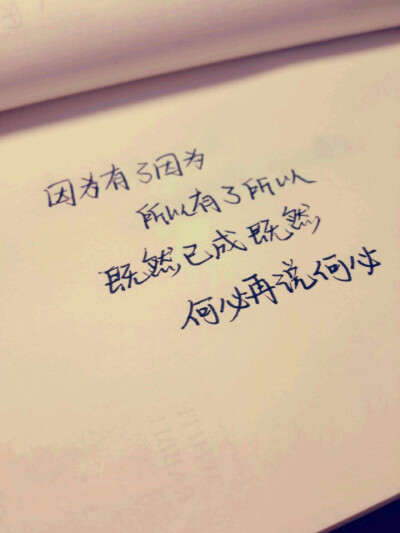 因为有了因为
所以有了所以
既然已成既然,
何必再说何必